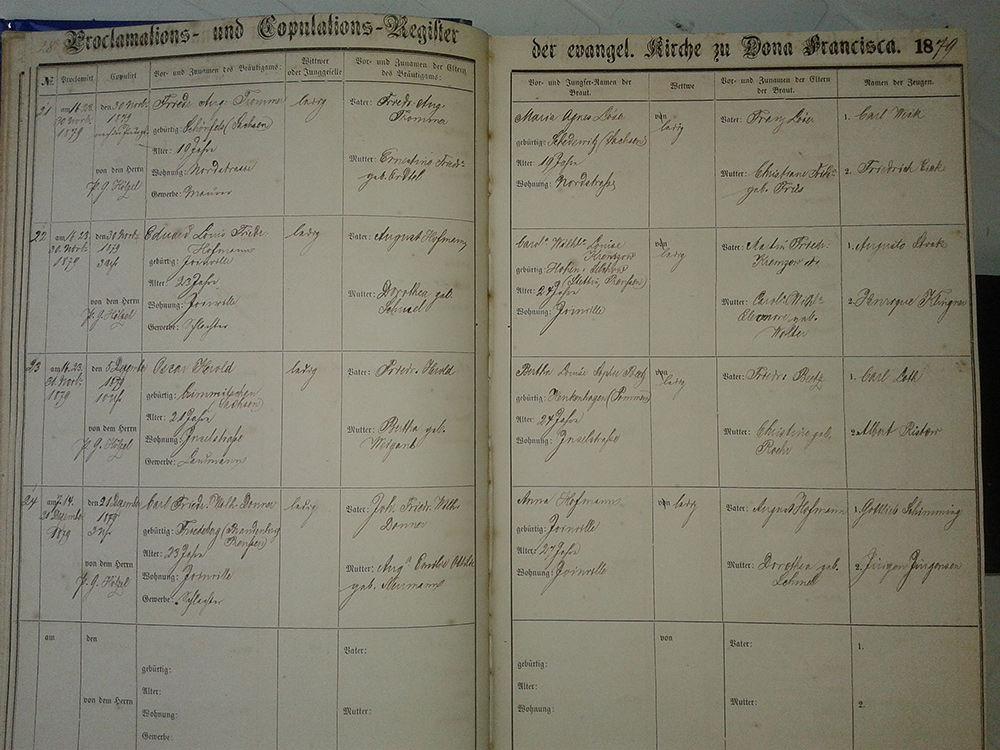 28
Proclamations- und Copulations-Register
№
Proclamirt
Copulirt
Vor- und Zunamen des Bräutigams:
Wittwer
oder Junggeselle
Vor- und Zunamen der Eltern
des Bräutigams:
21
am 16. 23.
30. Novb.
1879
den 30 Novb.
1879
von dem Herrn
P. G. Hölzel
Friedr. Aug. Tromma
gebürtig: Schönfels (Sachsen)
Alter: 19 Jahre
Wohnung: Nordstrasse
Gewerbe: Maurer
ledig
Vater: Friedr. Aug.
Tromma
Mutter: Ernestine Fried:
geb.
22
am 16. 23.
30. Novb.
1879
den 30 Novb.
1879
von dem Herrn
P. G. Hölzel
Eduard Louis
Hofmann
gebürtig: Joinville
Alter: 23 Jahre
Wohnung: Joinville
Gewerbe: Schlachter
ledig
Vater: August Hofmann
Mutter: Dorothea geb.
23
am 16. 23.
30. Novb.
1879
den 5 Dezember
1879
von dem Herrn
P. G. Hölzel
Oscar Herold
gebürtig:
Sachsen)
Alter: 28 Jahre
Wohnung: Inselstraße
Gewerbe:
ledig
Vater: Friedr. Herold
Mutter: Bertha geb.
Weigand
24
am 7. 14.
21 Dezember
1879
den 21 Dezember
1879
von dem Herrn
P. G. Hölzel
Carl Friedr. Wilh. Donner
gebürtig: Friedeberg (Brandenburg
Preussen)
Alter: 23 Jahre
Wohnung: Joinville
Gewerbe: Schlachter
ledig
Vater: Joh. Friedr. Wilh.
Donner
Mutter: Aug. Emilie
geb. Neumann
am
den
von dem Herrn
gebürtig:
Alter:
Wohnung:
Gewerbe:
Vater:
Mutter:
der evangel. Kirche zu Dona Francisca. 1879
Vor- und Jungfer-Namen der
Braut.
Wittwe
Vor- und Zunamen der Eltern
der Braut.
Namen der Zeugen.
Maria Agnes
gebürtig: Schedewitz (Sachsen)
Alter: 19 Jahre
Wohnung: Nordstraße
von
ledig
Vater: Franz
Mutter: Christiane Fried:
geb.
1. Carl
2. Friedrich
Carol. Wilh. Louise
Krentzow
gebürtig: Hohen
(Stettin, Preussen)
Alter: 24 Jahre
Wohnung: Joinville
von
ledig
Vater: Martin Friedr.
Mutter: Carol. Wilh.
Eleonore geb.
Wolter
1. Augusto
2. Henrique
Bertha Louise Sophie
gebürtig: Henkenhagen (Pommern)
Alter: 24 Jahre
Wohnung: Inselstraße
von
ledig
Vater: Friedr.
Mutter: Christine geb.
1. Carl
2. Albert Ristow
Anna Hofmann
gebürtig: Joinville
Alter: 27 Jahre
Wohnung: Joinville
von ledig
Vater: August Hofmann
Mutter: Dorothea geb.
1. Gottlieb Stimming
2. Jürgen Jürgensen
gebürtig:
Alter:
Wohnung:
von
Vater:
Mutter:
1.
2.